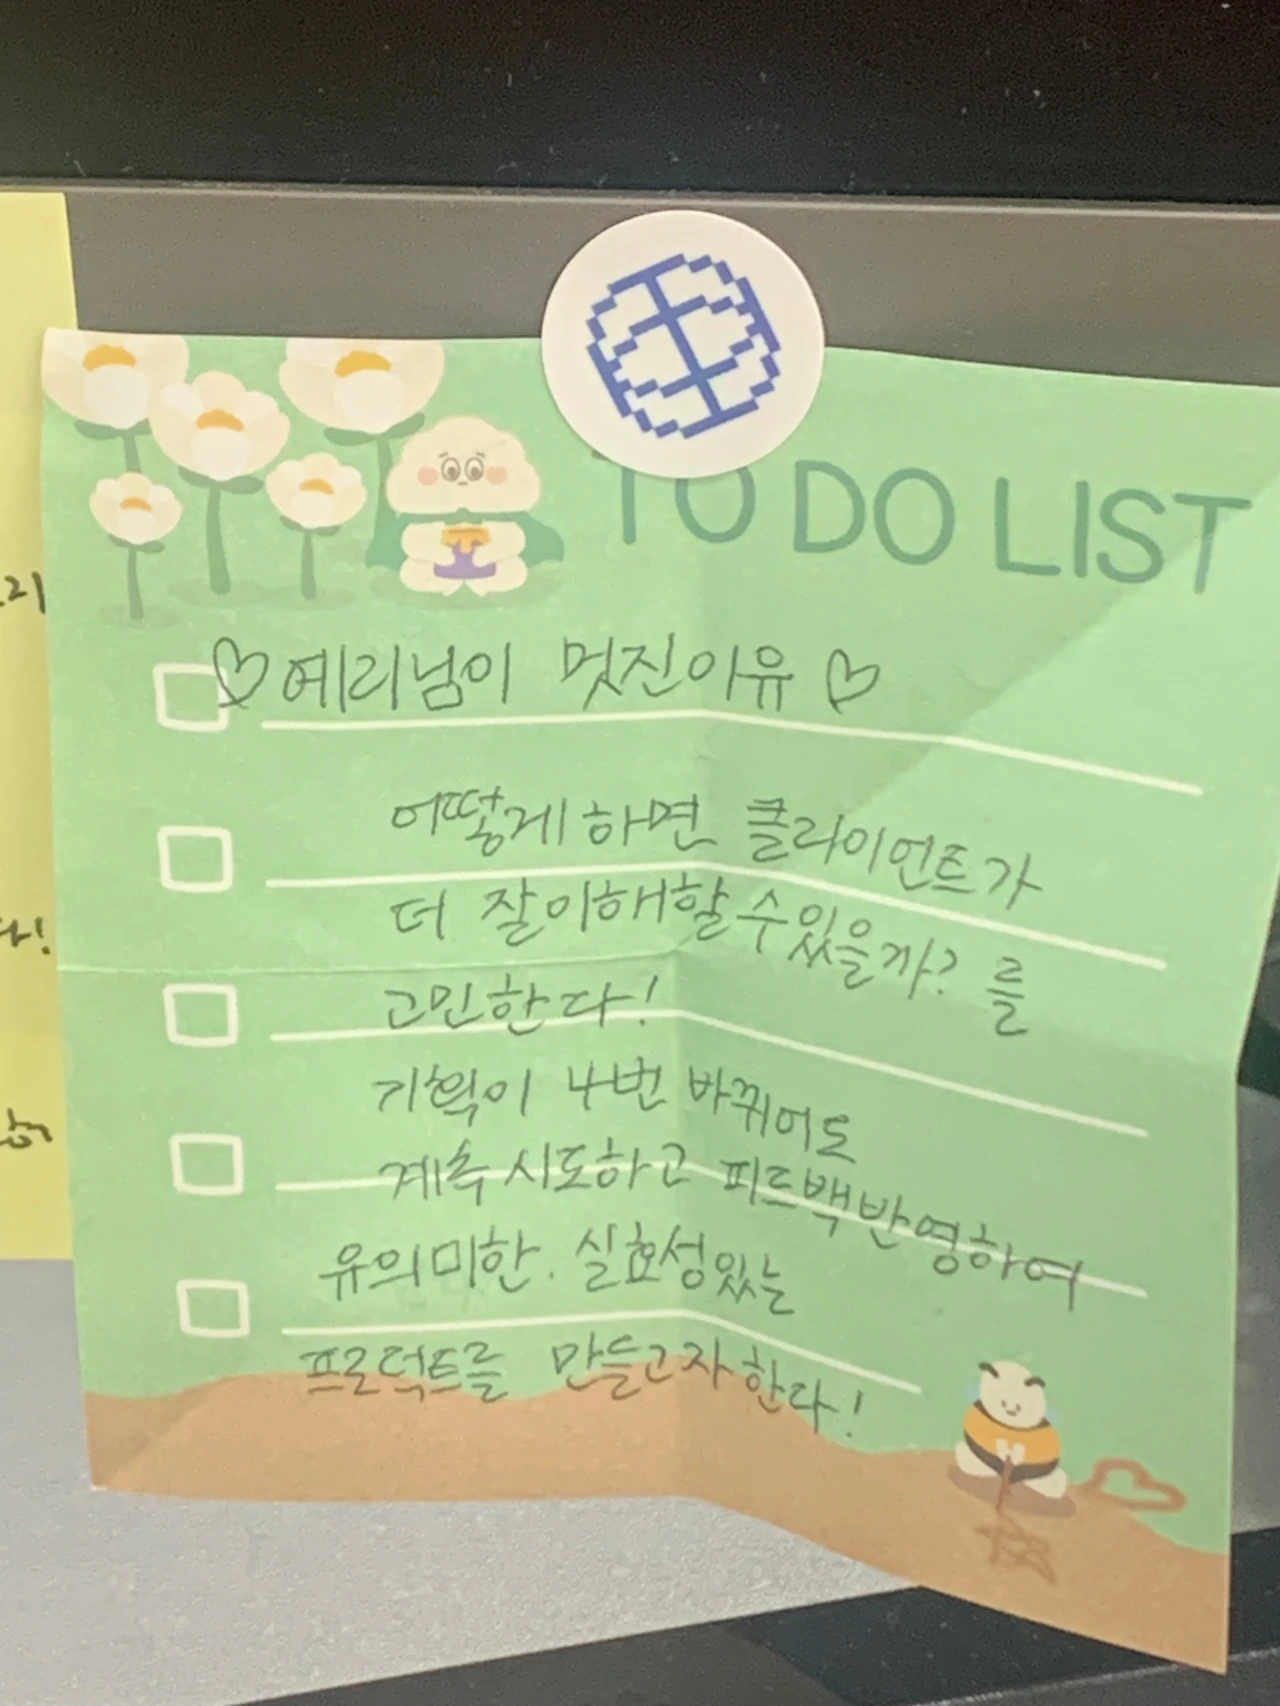 TO DO LIST
♡ 예리님이 멋진이유 ♡
어떻게 하면 클라이언트가
더 잘이해할 수있을까? 를
고민한다!
기획이 4번 바뀌어도
계속 시도하고 피드백반영하여
유의미한. 실효성있는
프로덕트를 만들고자한다!